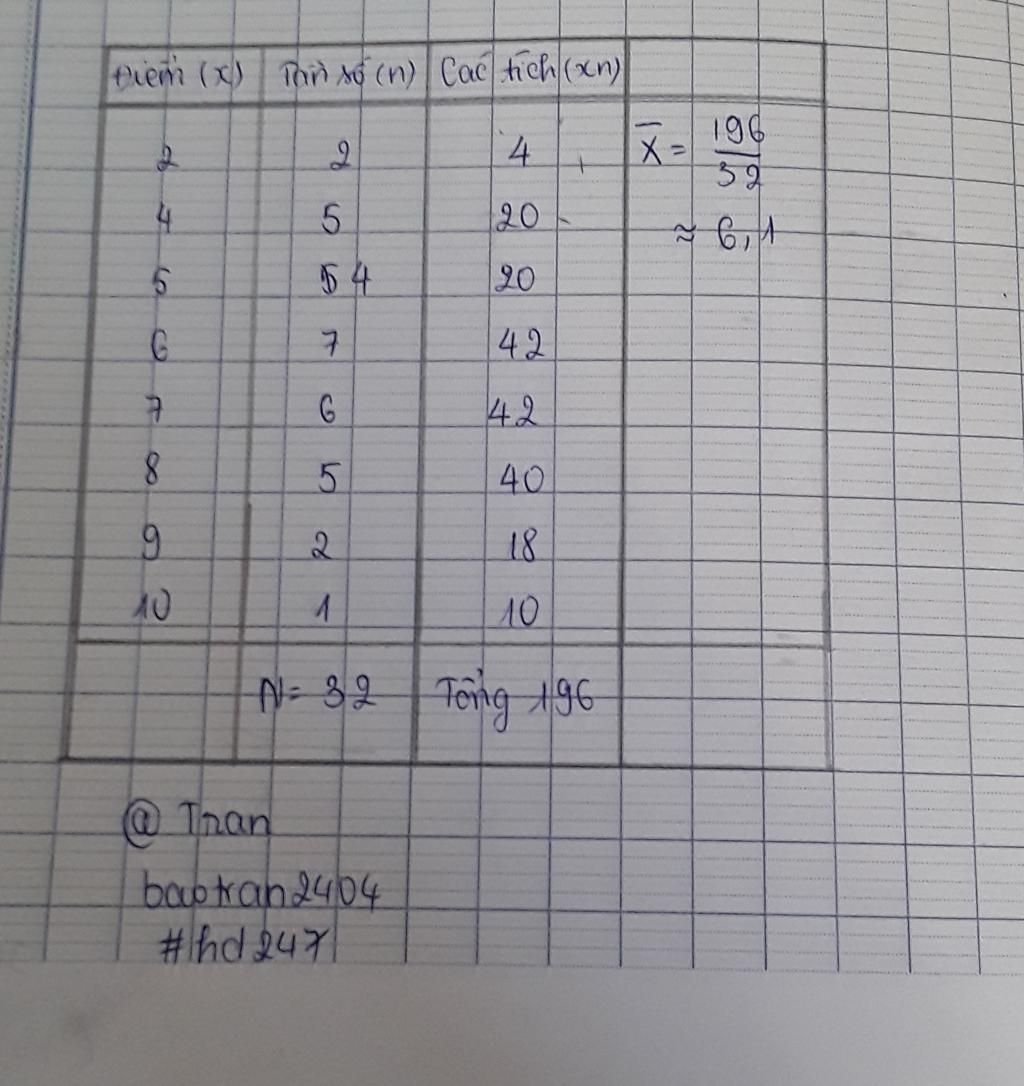 Điểm (x) Tần số (n) Các tích (xn)
2 2 4 X̄ = 196/32
4 5 20 ≈ 6,1
5 4 20
6 7 42
7 6 42
8 5 40
9 2 18
10 1 10
N = 32 Tổng 196
@ Tran
baotran2404
#hd247